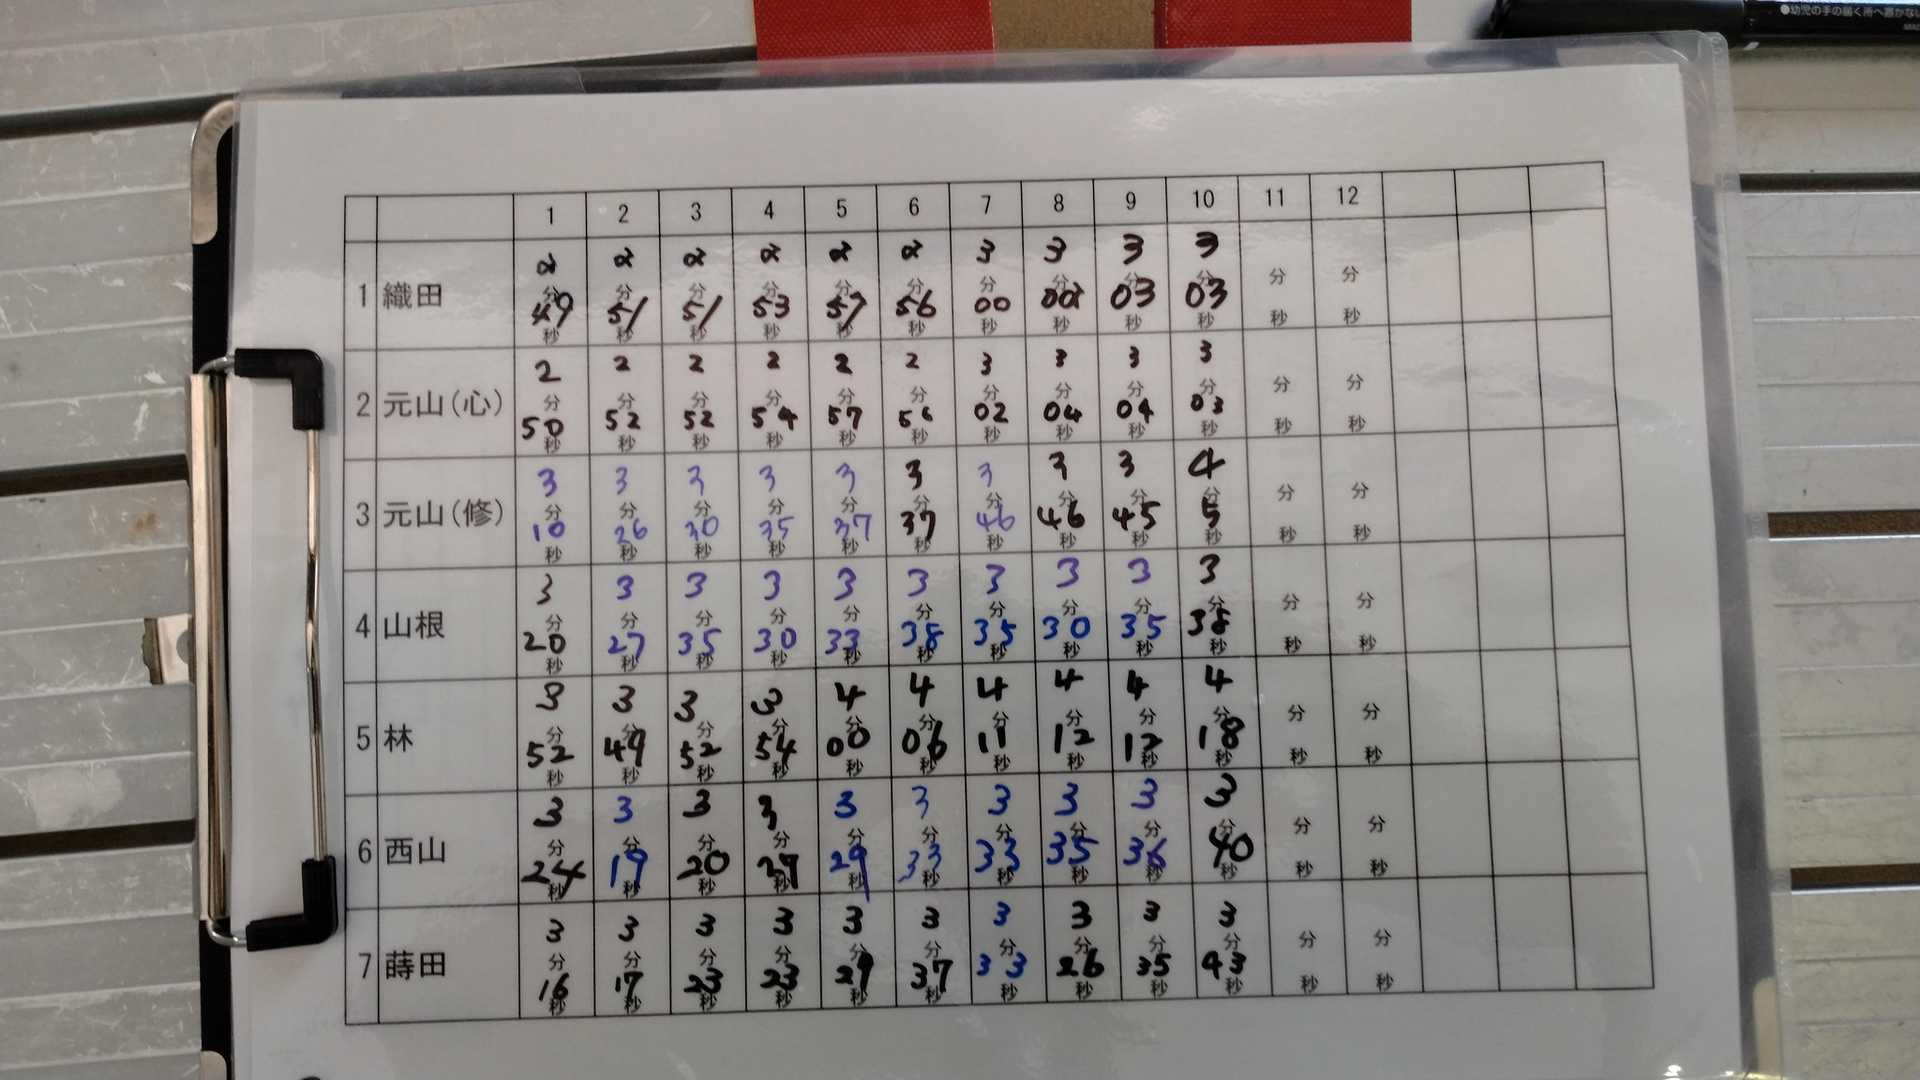 ●幼児の手の届く所へ置かない
1 2 3 4 5 6 7 8 9 10 11 12
1 織田 2分49秒 2分51秒 2分51秒 2分53秒 2分57秒 2分56秒 3分00秒 3分02秒 3分03秒 3分03秒 分秒 分秒
2 元山(心) 2分50秒 2分52秒 2分52秒 2分54秒 2分57秒 2分56秒 3分02秒 3分04秒 3分04秒 3分03秒 分秒 分秒
3 元山(修) 3分10秒 3分26秒 3分30秒 3分35秒 3分37秒 3分37秒 3分46秒 3分46秒 3分45秒 4分5秒 分秒 分秒
4 山根 3分20秒 3分27秒 3分35秒 3分30秒 3分33秒 3分38秒 3分35秒 3分30秒 3分35秒 3分38秒 分秒 分秒
5 林 3分52秒 3分49秒 3分52秒 3分54秒 4分00秒 4分06秒 4分11秒 4分12秒 4分12秒 4分18秒 分秒 分秒
6 西山 3分24秒 3分19秒 3分20秒 3分29秒 3分29秒 3分33秒 3分33秒 3分35秒 3分36秒 3分40秒 分秒 分秒
7 蒔田 3分16秒 3分17秒 3分23秒 3分23秒 3分29秒 3分37秒 3分33秒 3分26秒 3分35秒 3分43秒 分秒 分秒